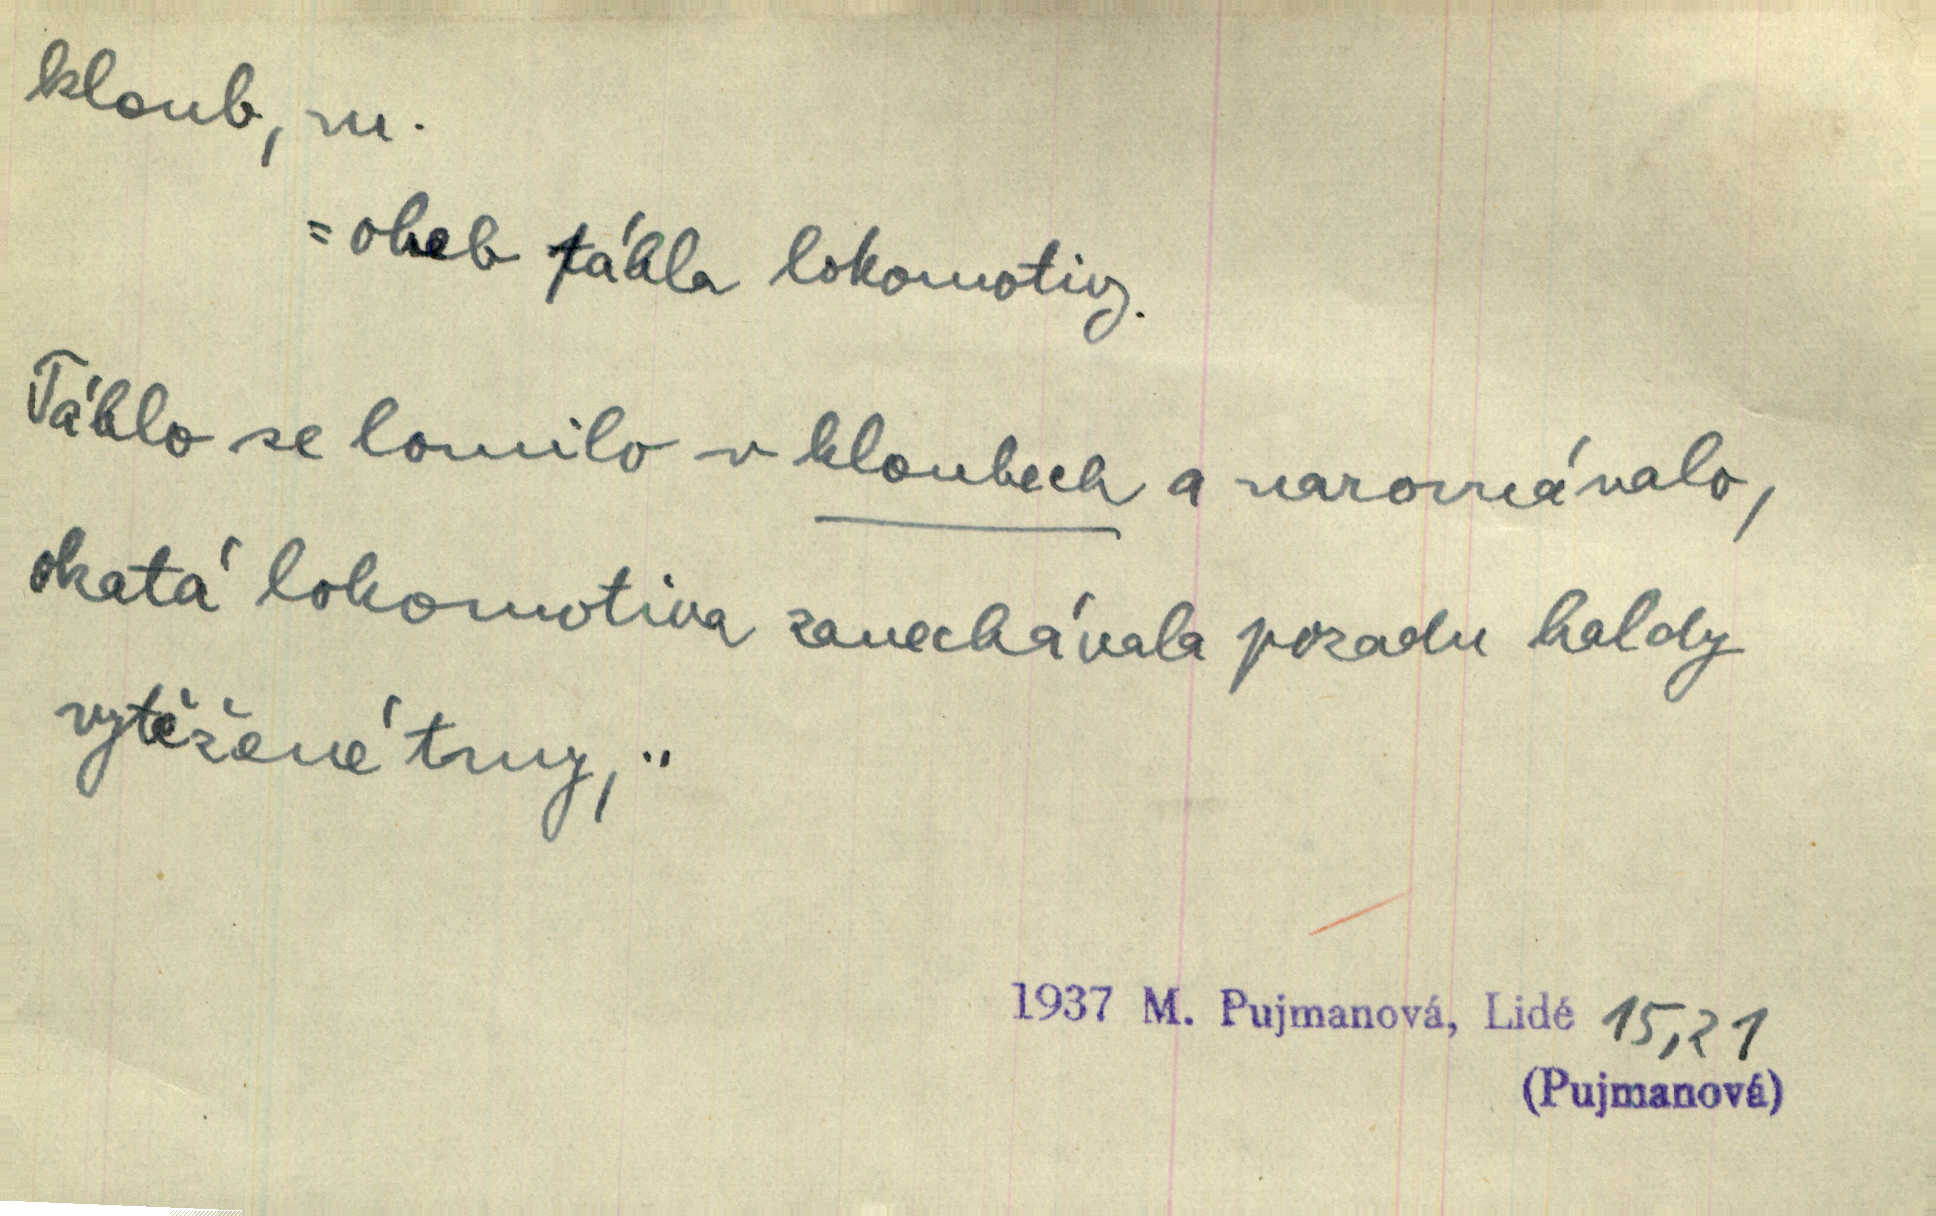 kloub, m.
= oheb táhla lokomotivy.
Táhlo se lomilo v kloubech a narovnávalo,
okatá lokomotiva zanechávala pozadu haldy
vytěžené tmy, "
1937 M. Pujmanová, Lidé 15,21
(Pujmanová)